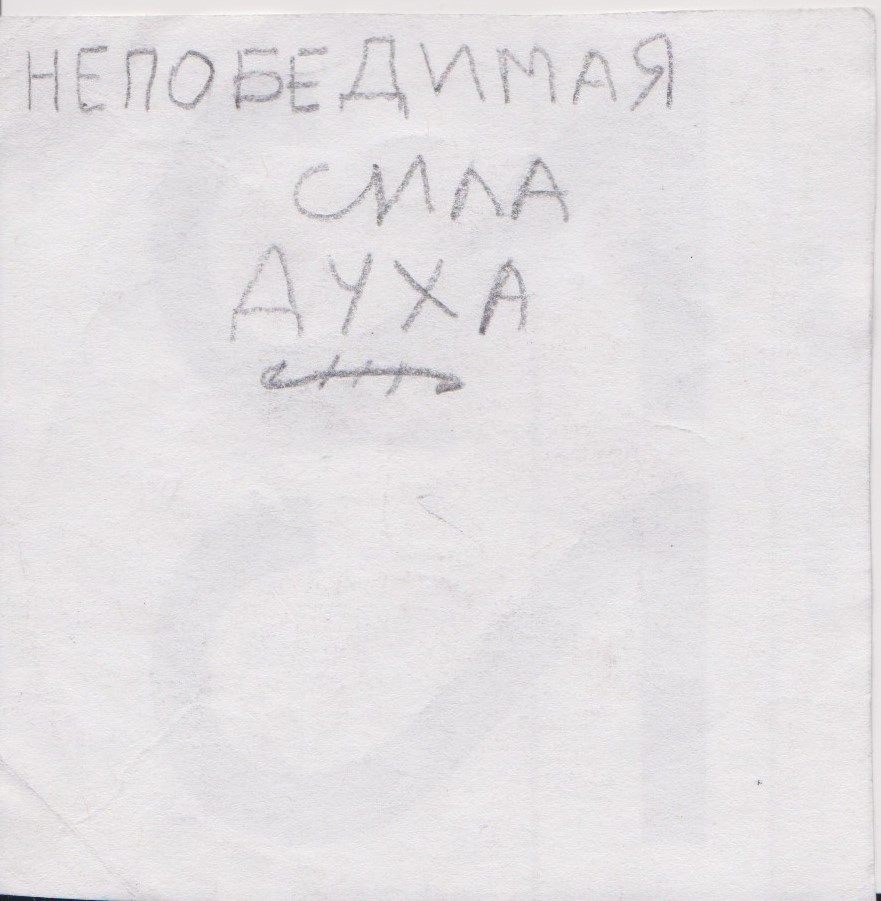 НЕПОБЕДИМАЯ
СИЛА
ДУХА